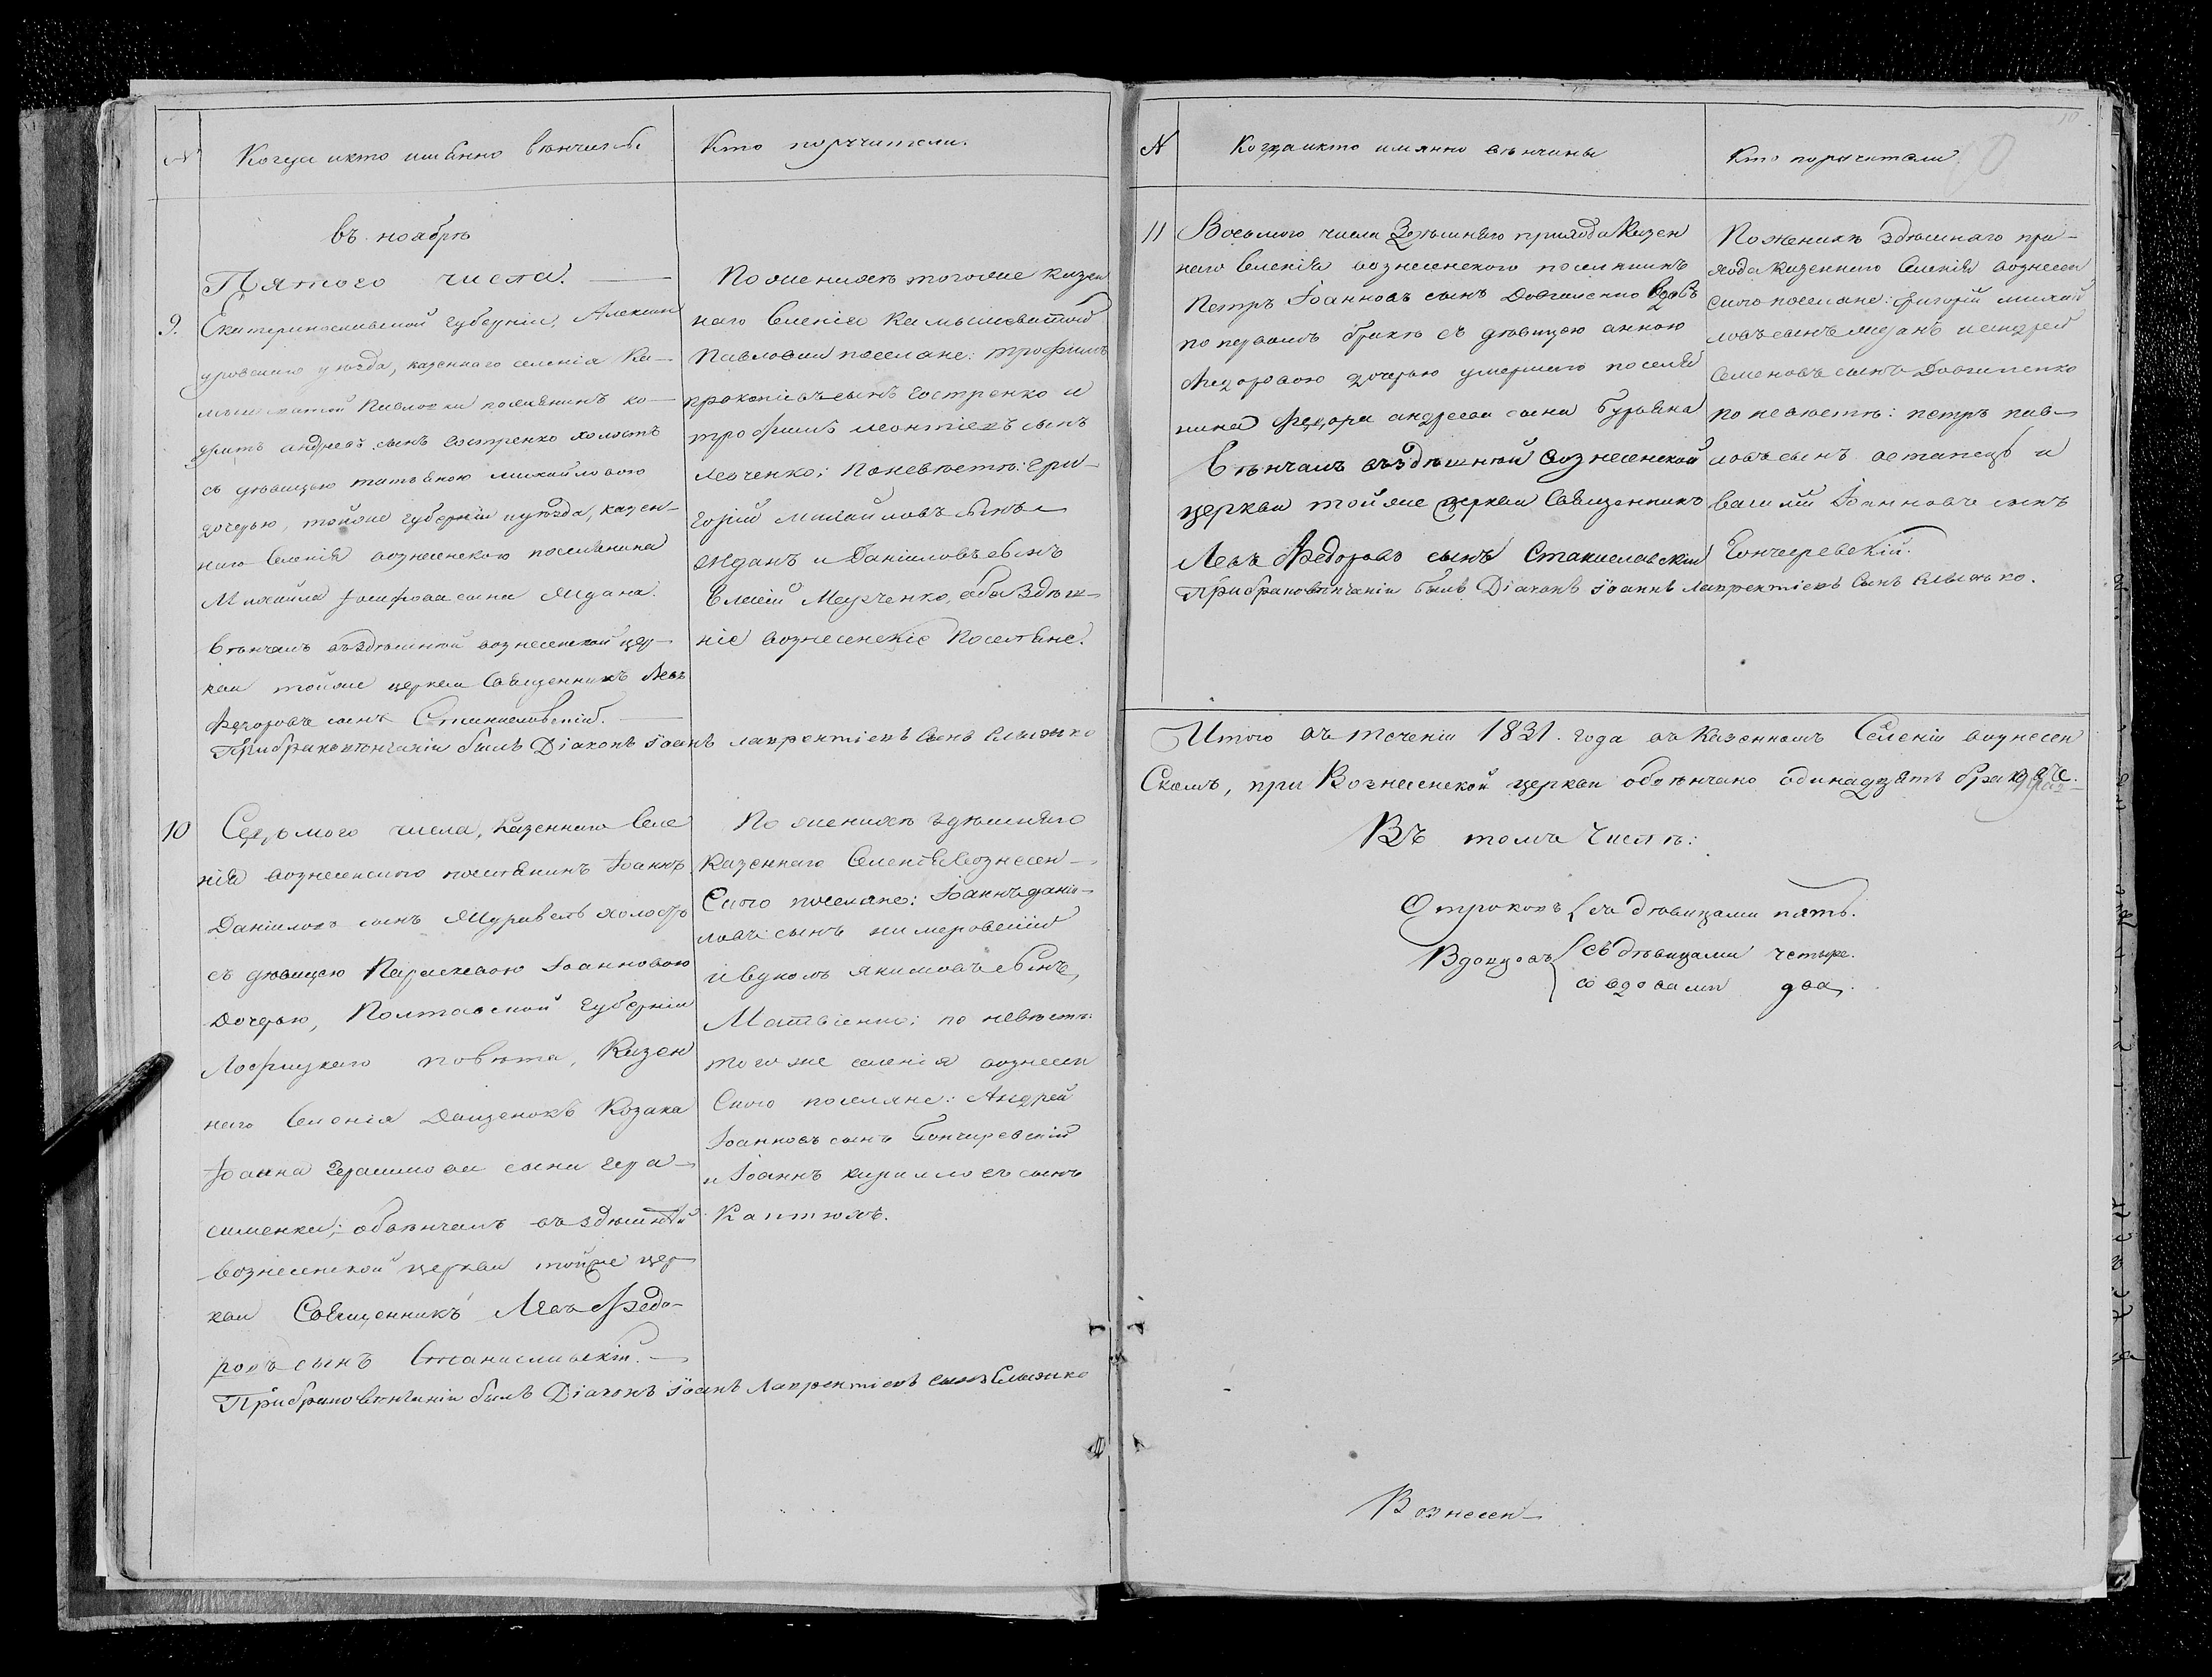 №
Когда и кто имѣнно вѣнчилсѣ
Кто поручители.
въ ноабрѣ
Пятого числа.
9. Екатеринославской губерніи, Алексан
дровского уѣзда, казенного селенія Ка-
мышеватой Павловки поселянинъ ко-
дратъ андреевъ сынъ Костренко холостъ
съ дѣвицею татьяною михайловою
дочерью, тойже губерніи и уѣзда, казен-
ного Селенія вознесенского поселянина
Михаила Іосифова сына Ждана.
вѣнчалъ въздѣшной вознесенской цер-
кви тойже церкви Священникъ Левъ
Федоровъ сынъ Станиславскій.
При браковѣнчаніи былъ Діаконъ Іоанъ лаврентіевъ сынъ
По женихѣ тогоже казен
ного Селенія Камышеватой
Павловки поселяне: трофимъ
прокопіевъ сынъ Костренко и
трофимъ леонтіевъ сынъ
Левченко; По невѣстѣ: гри-
горій михайловъ сынъ
Жданъ и Даніиловъ сынъ
Елисей Марченко, оба здѣш-
ніе вознесенскіе Поселяне.
10 Седьмого числа, казенного Селе
нія вознесенского поселянинъ Іоаннъ
Даніиловъ сынъ Журавель холостъ
съ дѣвицею Параскевою Іоанновою
дочерью, Полтавской губерніи
Лофицкаго повѣта, Казен
ного Селенія Дащенокъ Козака
Іоанна Герасимова сына Гера-
сименка; обвѣнчалъ въ здѣшней
вознесенской церкви тойже цер-
кви Священникъ Левъ Федо-
ровъ сынъ Станиславскій.
При браковѣнчаніи былъ Діаконъ Іоанъ Лаврентіевъ сынъ
По женихѣ здѣшняго
казеннаго Селенія Вознесен-
ского поселяне: Іоаннъ дані-
ловъ сынъ
и вуколъ якимовъ сынъ,
Матвіенко; по невѣстѣ:
того же селенія вознесен
Ского поселяне: Андрей
Іоанновъ сынъ Гончаревскій
и Іоаннъ кирилловъ сынъ
Каптюхъ.
№
Когда и кто имянно вѣнчаны
Кто поручители
10
11 Восьмого числа Здѣшняго прихода Казен
наго Селенія вознесенского поселянинъ
Петръ Іоанновъ сынъ Довгаленко вдовъ
по первомъ бракѣ съ дѣвицею анною
Федоровою дочерью умершаго поселя
нина Федора андреева сына Буряка
Вѣнчалъ въздѣшнѣй вознесенской
церкви тойже церкви Священникъ
Левъ Федоровъ сынъ Станиславскій
При браковѣнчаніи былъ Діаконъ Іоаннъ Лаврентіевъ Сынъ
По женихѣ здѣшнаго при-
хода казенного Селенія вознесен
ского поселяне: Григорій михай
ловъ сынъ жданъ и андрей
Семеновъ сынъ Довгиленко
по невѣстѣ: петръ пав-
ловъ сынъ остапецъ и
василій Іоанновъ сынъ
Гончеревскій.
Итого въ теченіи 1831. года въ Казенномъ Селеніи вознесен
Скомъ, при Вознесенской церкви обвѣнчано одинадцять
Въ томъ числѣ:
Отроковъ { съ дѣвицами пять.
Вдовцовъ { съ дѣвицами четыре.
со вдовами два.
Вознесен-